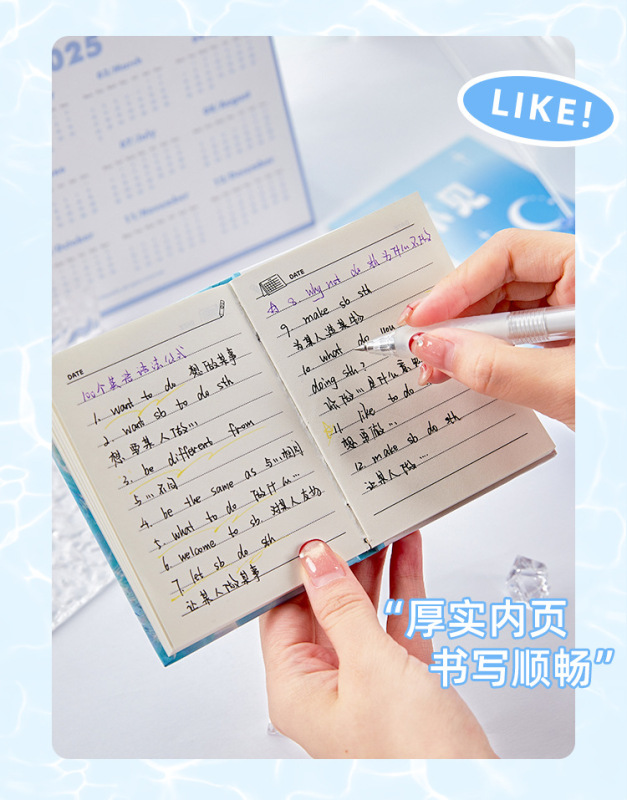 2025
03/March
07/July
08/August
11/November
LIKE!
DATE
100个英语语法公式
1. want to do 想做某事
2. want sb to do sth
想要某人做...
3. be different from
与...不同
4. be the same as 与...相同
5. what to do 做什么...
6. welcome to sb 对某人友好
7. let sb do sth
让某人做某事
DATE
8. why not do sth 为什么不做
9. make sb sth
为某人造某物
10. what do you
doing sth?
11. like to do
想要做...
12. make sb do sth
让某人做....
“厚实内页
书写顺畅”